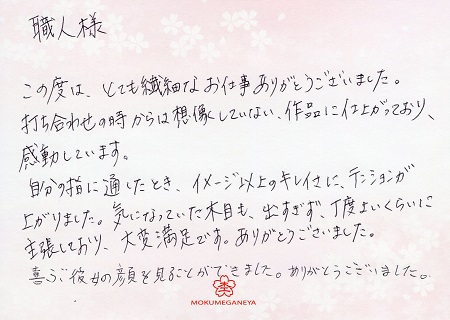 職人様
この度は、とても繊細なお仕事ありがとうございました。
打ち合わせの時からは想像していない、作品に仕上がっており、
感動しています。
自分の指に通したとき、イメージ以上のキレイさに、テンションが
上がりました。気になっていた木目も、出すぎず、丁度よいくらいに
主張しており、大変満足です。ありがとうございました。
喜ぶ彼女の顔を見ることができました。ありがとうございました。
MOKUMEGANEYA